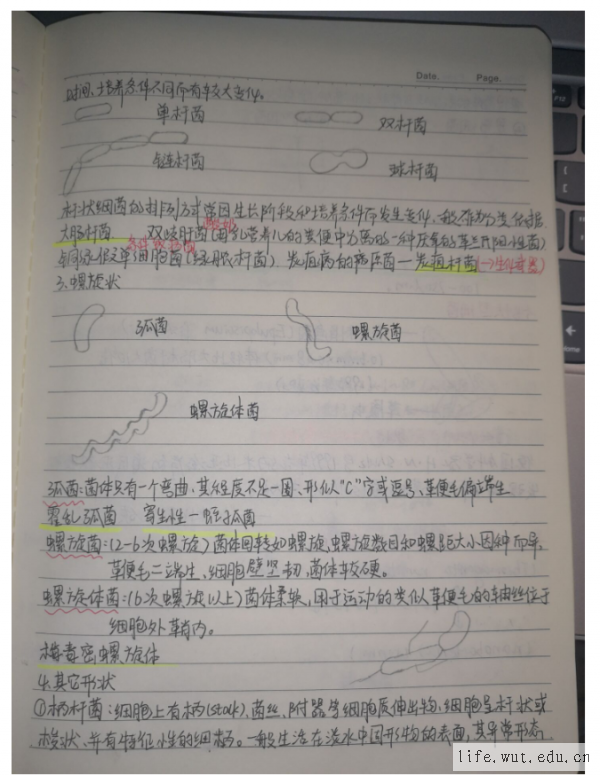 Date.          Page.
时间、培养条件不同而有较大变化。
单杆菌    双杆菌
链杆菌    球杆菌
杆状细菌的排列方式常因生长阶段和培养条件而发生变化，
大肠杆菌    双歧杆菌
铜绿假单细胞菌(绿脓杆菌) 炭疽病的病原菌—炭疽杆菌(→生化武器)
3.螺旋状
弧菌    螺旋菌
螺旋体菌
弧菌:菌体只有一个弯曲,其程度不足一圈,形似"C"字或逗号,鞭毛偏端生
霍乱弧菌    寄生性—蛭弧菌
螺旋菌:(2-6次螺旋)菌体回转如螺旋,螺旋数目和螺距大小因种而异,
鞭毛二端生,细胞壁坚韧,菌体较硬。
螺旋体菌:(6次螺旋以上)菌体柔软,用于运动的类似鞭毛的轴丝位于
细胞外鞘内。
梅毒密螺旋体
4.其它形状
①柄杆菌:细胞上有柄(stalk)、菌丝、附器等细胞质伸出物,细胞呈杆状或
梭状,并有特征性的细柄。一般生活在淡水中固形物的表面,其异常形态
life.wut.edu.cn